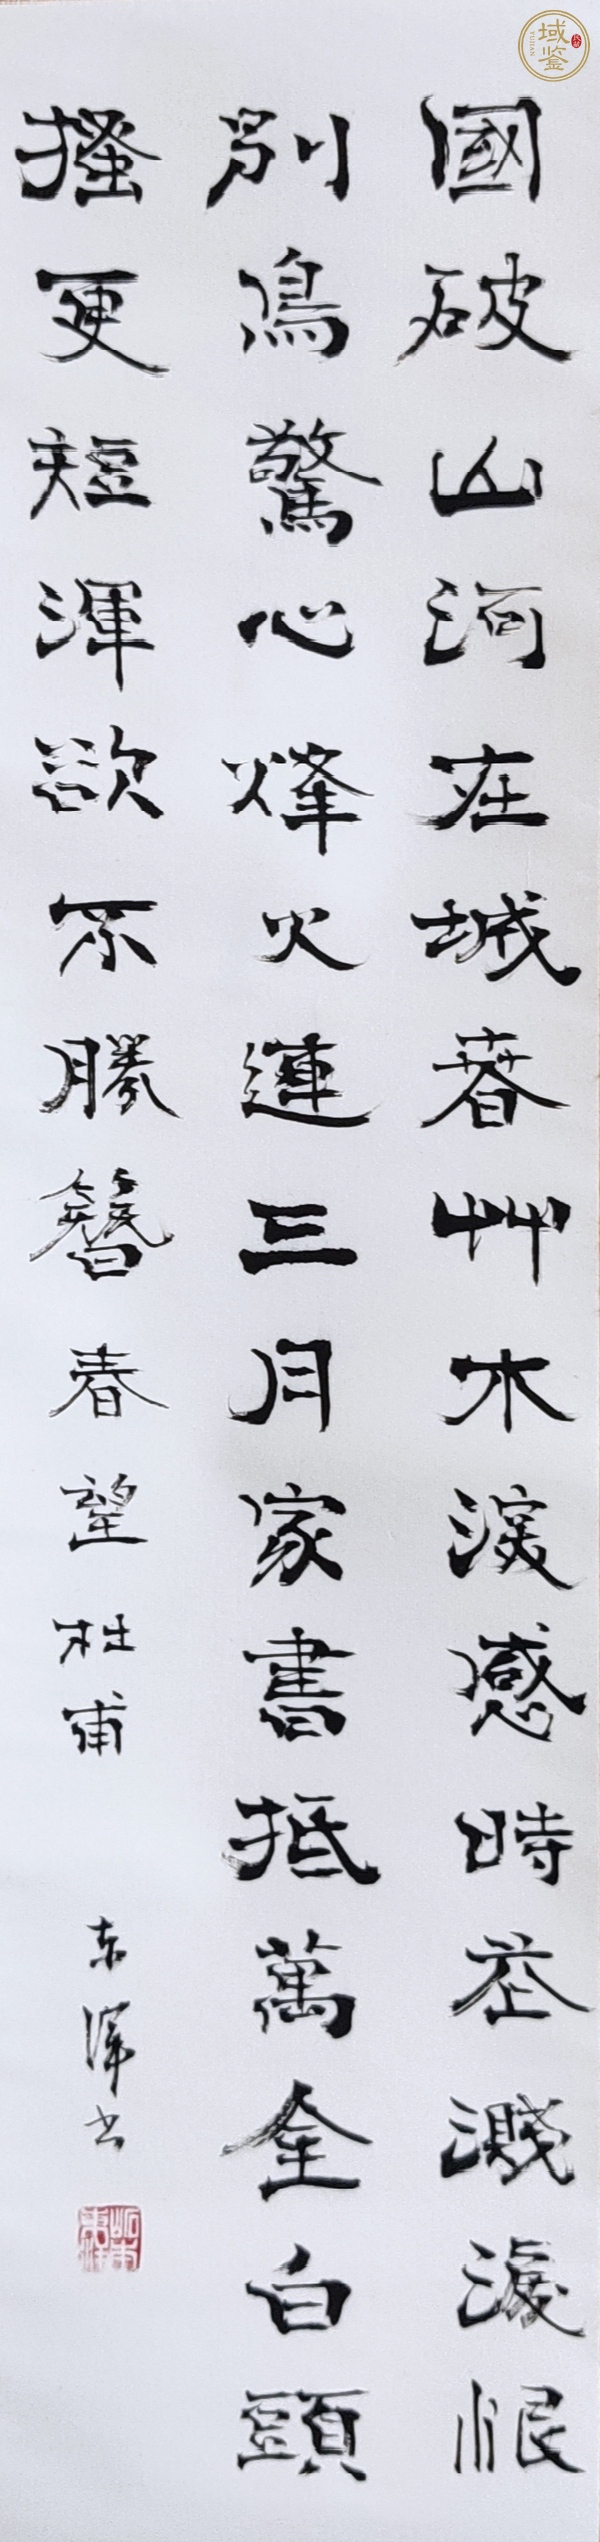 國破山河在城春艸木深感時花濺淚恨
別鳥驚心烽火連三月家書抵萬金白頭
搔更短渾欲不勝簪春望杜甫
东 书
域鉴
YUJIAN